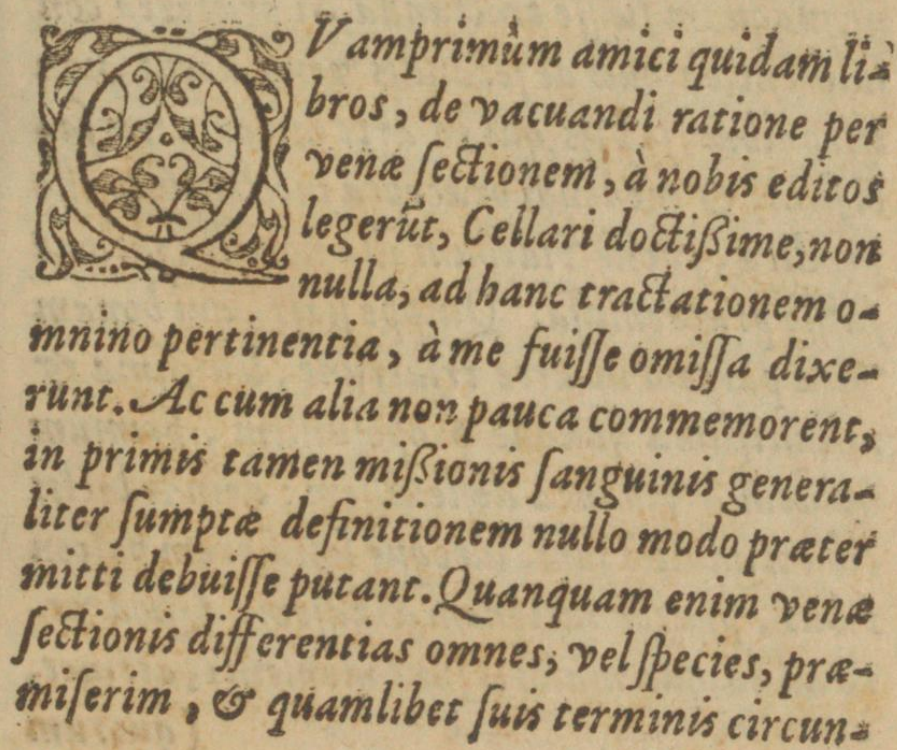 QVamprimùm amici quidam li-
bros, de vacuandi ratione per
venæ ſectionem, à nobis editos
legerūt, Cellari doctißime, non
nulla, ad hanc tractationem o-
mnino pertinentia, à me fuiſſe omiſſa dixe-
runt. Ac cum alia non pauca commemorent,
in primis tamen mißionis ſanguinis genera-
liter ſumptæ definitionem nullo modo præter
mitti debuiſſe putant. Quanquam enim venæ
ſectionis differentias omnes, vel ſpecies, præ-
miſerim, & quamlibet ſuis terminis circun-